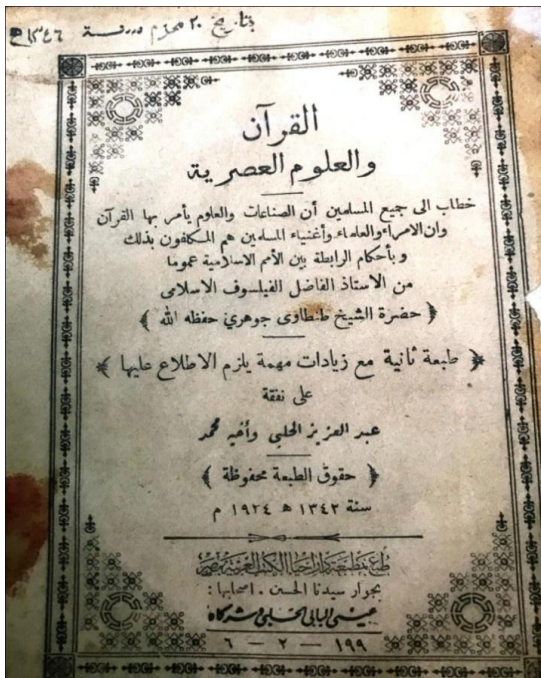 بتاريخ ٢٠ محرم سنة ١٣٤٦ ھ
القرآن
والعلوم العصرية
خطاب الى جميع المسلمين أن الصناعات والعلوم يأمر بها القرآن
وان الامراء والعلماء وأغنياء المسلمين هم المكلفون بذلك
وبأحكام الرابطة بين الأمم الاسلامية عموما
من الاستاذ الفاضل الفيلسوف الاسلامى
﴿ حضرة الشيخ طنطاوى جوهري حفظه الله ﴾
﴿ طبعة ثانية مع زيادات مهمة يلزم الاطلاع عليها ﴾
على نفقة
عبد العزيز الحلبي وأخيه محمد
﴿ حقوق الطبعة محفوظة ﴾
سنة ١٣٤٢ ھ ١٩٢٤ م
طبع بمطبعة دار احياء الكتب العربية بمصر
بجوار سيدنا الحسين . اصحابها :
عيسى البابى الحلبى وشركاه
١٩٩ — ٢ — ٦